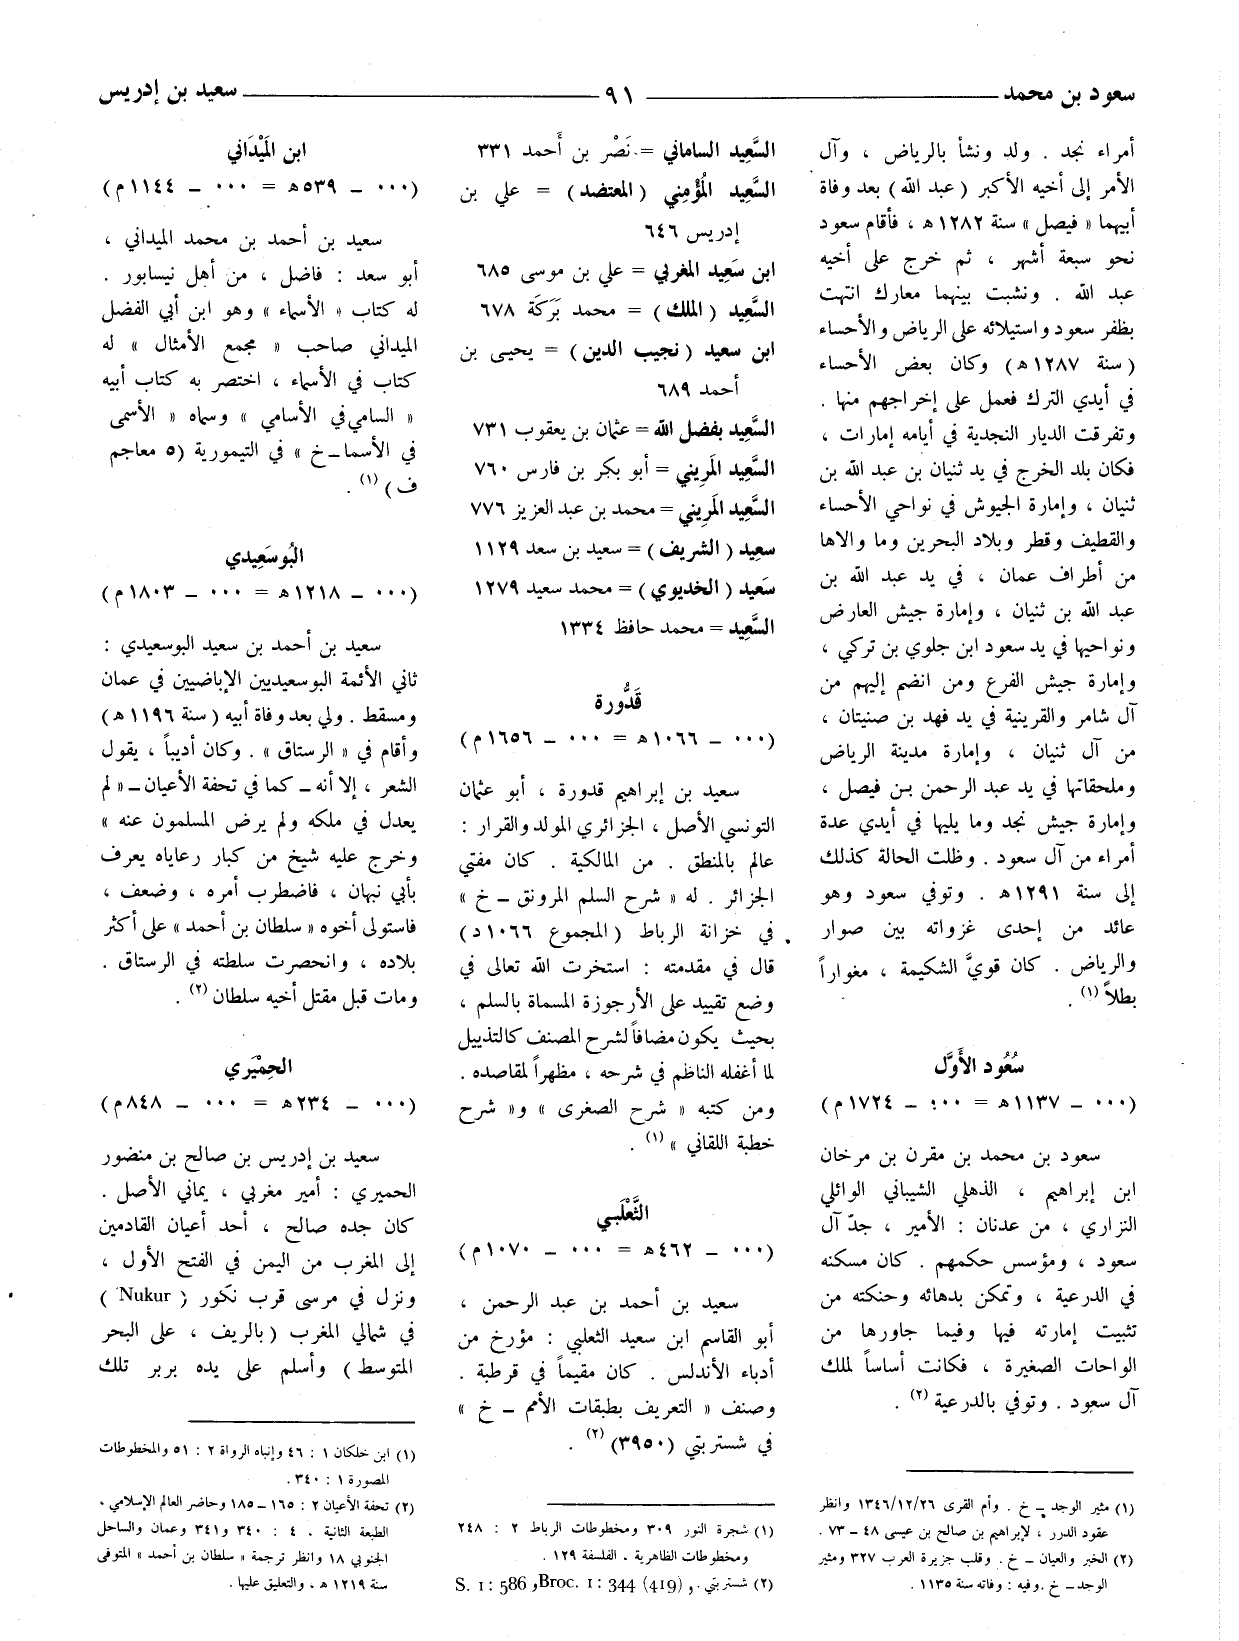 سعود بن محمد
٩١
سعيد بن إدريس
أمراء نجد . ولد ونشأ بالرياض ، وآل
الأمر إلى أخيه الأكبر ( عبد الله ) بعد وفاة
أبيهما « فيصل » سنة ١٢٨٢ ه ، فأقام سعود
نحو سبعة أشهر ، ثم خرج على أخيه
عبد الله . ونشبت بينهما معارك انتهت
بظفر سعود واستيلائه على الرياض والأحساء
( سنة ١٢٨٧ ه ) وكان بعض الأحساء
في أيدي الترك فعمل على إخراجهم منها .
وتفرقت الديار النجدية في أيامه إمارات ،
فكان بلد الخرج في يد ثنيان بن عبد الله بن
ثنيان ، وإمارة الجيوش في نواحي الأحساء
والقطيف وقطر وبلاد البحرين وما والاها
من أطراف عمان ، في يد عبد الله بن
عبد الله بن ثنيان ، وإمارة جيش العارض
ونواحيها في يد سعود ابن جلوي بن تركي ،
وإمارة جيش الفرع ومن انضم إليهم من
آل شامر والقرينية في يد فهد بن صنيتان ،
من آل ثنيان ، وإمارة مدينة الرياض
وملحقاتها في يد عبد الرحمن بن فيصل ،
وإمارة جيش نجد وما يليها في أيدي عدة
أمراء من آل سعود . وظلت الحالة كذلك
إلى سنة ١٢٩١ ه . وتوفي سعود وهو
عائد من إحدى غزواته بين صوار
والرياض . كان قويَّ الشكيمة ، مغواراً
بطلاً (١) .
سُعُود الأَوَّل
( ٠٠٠ – ١١٣٧ ه = ٠٠٠ – ١٧٢٤ م )
سعود بن محمد بن مقرن بن مرخان
ابن إبراهيم ، الذهلي الشيباني الوائلي
النزاري ، من عدنان : الأمير ، جدّ آل
سعود ، ومؤسس حكمهم . كان مسكنه
في الدرعية ، وتمكن بدهائه وحنكته من
تثبيت إمارته فيها وفيما جاورها من
الواحات الصغيرة ، فكانت أساساً لملك
آل سعود . وتوفي بالدرعية (٢) .
(١) مثير الوجد – خ . وأم القرى ١٣٤٦/١٢/٢٦ وانظر
عقود الدرر ، لإبراهيم بن صالح بن عيسى ٤٨ – ٧٣ .
(٢) الخبر والعيان – خ . وقلب جزيرة العرب ٣٢٧ ومثير
الوجد – خ . وفيه : وفاته سنة ١١٣٥ .
السَّعِيد الساماني = نَصْر بن أَحمد ٣٣١
السَّعِيد المُؤْمِني ( المعتضد ) = علي بن
إدريس ٦٤٦
ابن سَعِيد المغربي = علي بن موسى ٦٨٥
السَّعِيد ( الملك ) = محمد بَرَكَة ٦٧٨
ابن سعيد ( نجيب الدين ) = يحيى بن
أحمد ٦٨٩
السَّعِيد بفضل الله = عثمان بن يعقوب ٧٣١
السَّعِيد المَرِيني = أبو بكر بن فارس ٧٦٠
السَّعِيد المَرِيني = محمد بن عبد العزيز ٧٧٦
سعِيد ( الشريف ) = سعيد بن سعد ١١٢٩
سَعِيد ( الخديوي ) = محمد سعيد ١٢٧٩
السَّعِيد = محمد حافظ ١٣٣٤
قَدُّورة
( ٠٠٠ – ١٠٦٦ ه = ٠٠٠ – ١٦٥٦ م )
سعيد بن إبراهيم قدورة ، أبو عثمان
التونسي الأصل ، الجزائري المولد والقرار :
عالم بالمنطق . من المالكية . كان مفتي
الجزائر . له « شرح السلم المرونق – خ »
في خزانة الرباط ( المجموع ١٠٦٦ د )
قال في مقدمته : استخرت الله تعالى في
وضع تقييد على الأرجوزة المسماة بالسلم ،
بحيث يكون مضافاً لشرح المصنف كالتذييل
لما أغفله الناظم في شرحه ، مظهراً لمقاصده .
ومن كتبه « شرح الصغرى » و« شرح
خطبة اللقاني » (١) .
الثَّعْلَبي
( ٠٠٠ – ٤٦٢ ه = ٠٠٠ – ١٠٧٠ م )
سعيد بن أحمد بن عبد الرحمن ،
أبو القاسم ابن سعيد الثعلبي : مؤرخ من
أدباء الأندلس . كان مقيماً في قرطبة .
وصنف « التعريف بطبقات الأمم – خ »
في شستربتي ( ٣٩٥٠ ) (٢) .
(١) شجرة النور ٣٠٩ ومخطوطات الرباط ٢ : ٢٤٨
ومخطوطات الظاهرية . الفلسفة ١٢٩ .
(٢) شستربتي . و Broc. 1: 344 (419) و S. 1: 586
ابن المَيْدَاني
( ٠٠٠ – ٥٣٩ ه = ٠٠٠ – ١١٤٤ م )
سعيد بن أحمد بن محمد الميداني ،
أبو سعد : فاضل ، من أهل نيسابور .
له كتاب « الأسماء » وهو ابن أبي الفضل
الميداني صاحب « مجمع الأمثال » له
كتاب في الأسماء ، اختصر به كتاب أبيه
« السامي في الأسامي » وسماه « الأسمى
في الأسما – خ » في التيمورية ( ٥ معاجم
ف ) (١) .
البُوسَعِيدي
( ٠٠٠ – ١٢١٨ ه = ٠٠٠ – ١٨٠٣ م )
سعيد بن أحمد بن سعيد البوسعيدي :
ثاني الأئمة البوسعيديين الإباضيين في عمان
ومسقط . ولي بعد وفاة أبيه ( سنة ١١٩٦ ه )
وأقام في « الرستاق » . وكان أديباً ، يقول
الشعر ، إلا أنه – كما في تحفة الأعيان – « لم
يعدل في ملكه ولم يرض المسلمون عنه »
وخرج عليه شيخ من كبار رعاياه يعرف
بأبي نبهان ، فاضطرب أمره ، وضعف ،
فاستولى أخوه « سلطان بن أحمد » على أكثر
بلاده ، وانحصرت سلطته في الرستاق .
ومات قبل مقتل أخيه سلطان (٢) .
الحِمْيَري
( ٠٠٠ – ٢٣٤ ه = ٠٠٠ – ٨٤٨ م )
سعيد بن إدريس بن صالح بن منصور
الحميري : أمير مغربي ، يماني الأصل .
كان جده صالح ، أحد أعيان القادمين
إلى المغرب من اليمن في الفتح الأول ،
ونزل في مرسى قرب نكور ( Nukur )
في شمالي المغرب ( بالريف ، على البحر
المتوسط ) وأسلم على يده بربر تلك
(١) ابن خلكان ١ : ٤٦ وإنباه الرواة ٢ : ٥١ والمخطوطات
المصورة ١ : ٣٤٠ .
(٢) تحفة الأعيان ٢ : ١٦٥ – ١٨٥ وحاضر العالم الإسلامي ،
الطبعة الثانية ، ٤ : ٣٤٠ و٣٤١ وعمان والساحل
الجنوبي ١٨ وانظر ترجمة « سلطان بن أحمد » المتوفى
سنة ١٢١٩ ه ، والتعليق عليها .